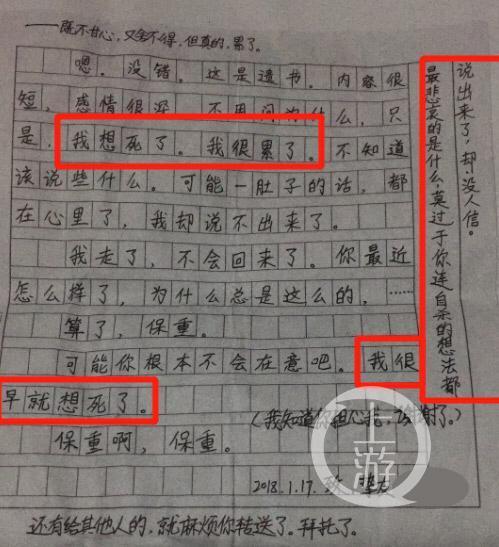 ——既不甘心，又舍不得，但真的，累了。
嗯。没错。这是遗书。内容很
短，感情很深。不用问为什么，只
是，我想死了。我很累了。不知道
该说些什么。可能一肚子的话，都
在心里了，我却说不出来了。
我走了，不会回来了。你最近
怎么样了，为什么总是这么的，……
算了，保重。
可能你根本不会在意吧。我很
早就想死了。
（我知道你担心我，谢谢了。）
保重啊，保重。
2018.1.17.
还有给其他人的，就麻烦你转送了。拜托了。
最悲哀的是什么，莫过于你连自杀的想法都
说出来了，却没人信。
上游